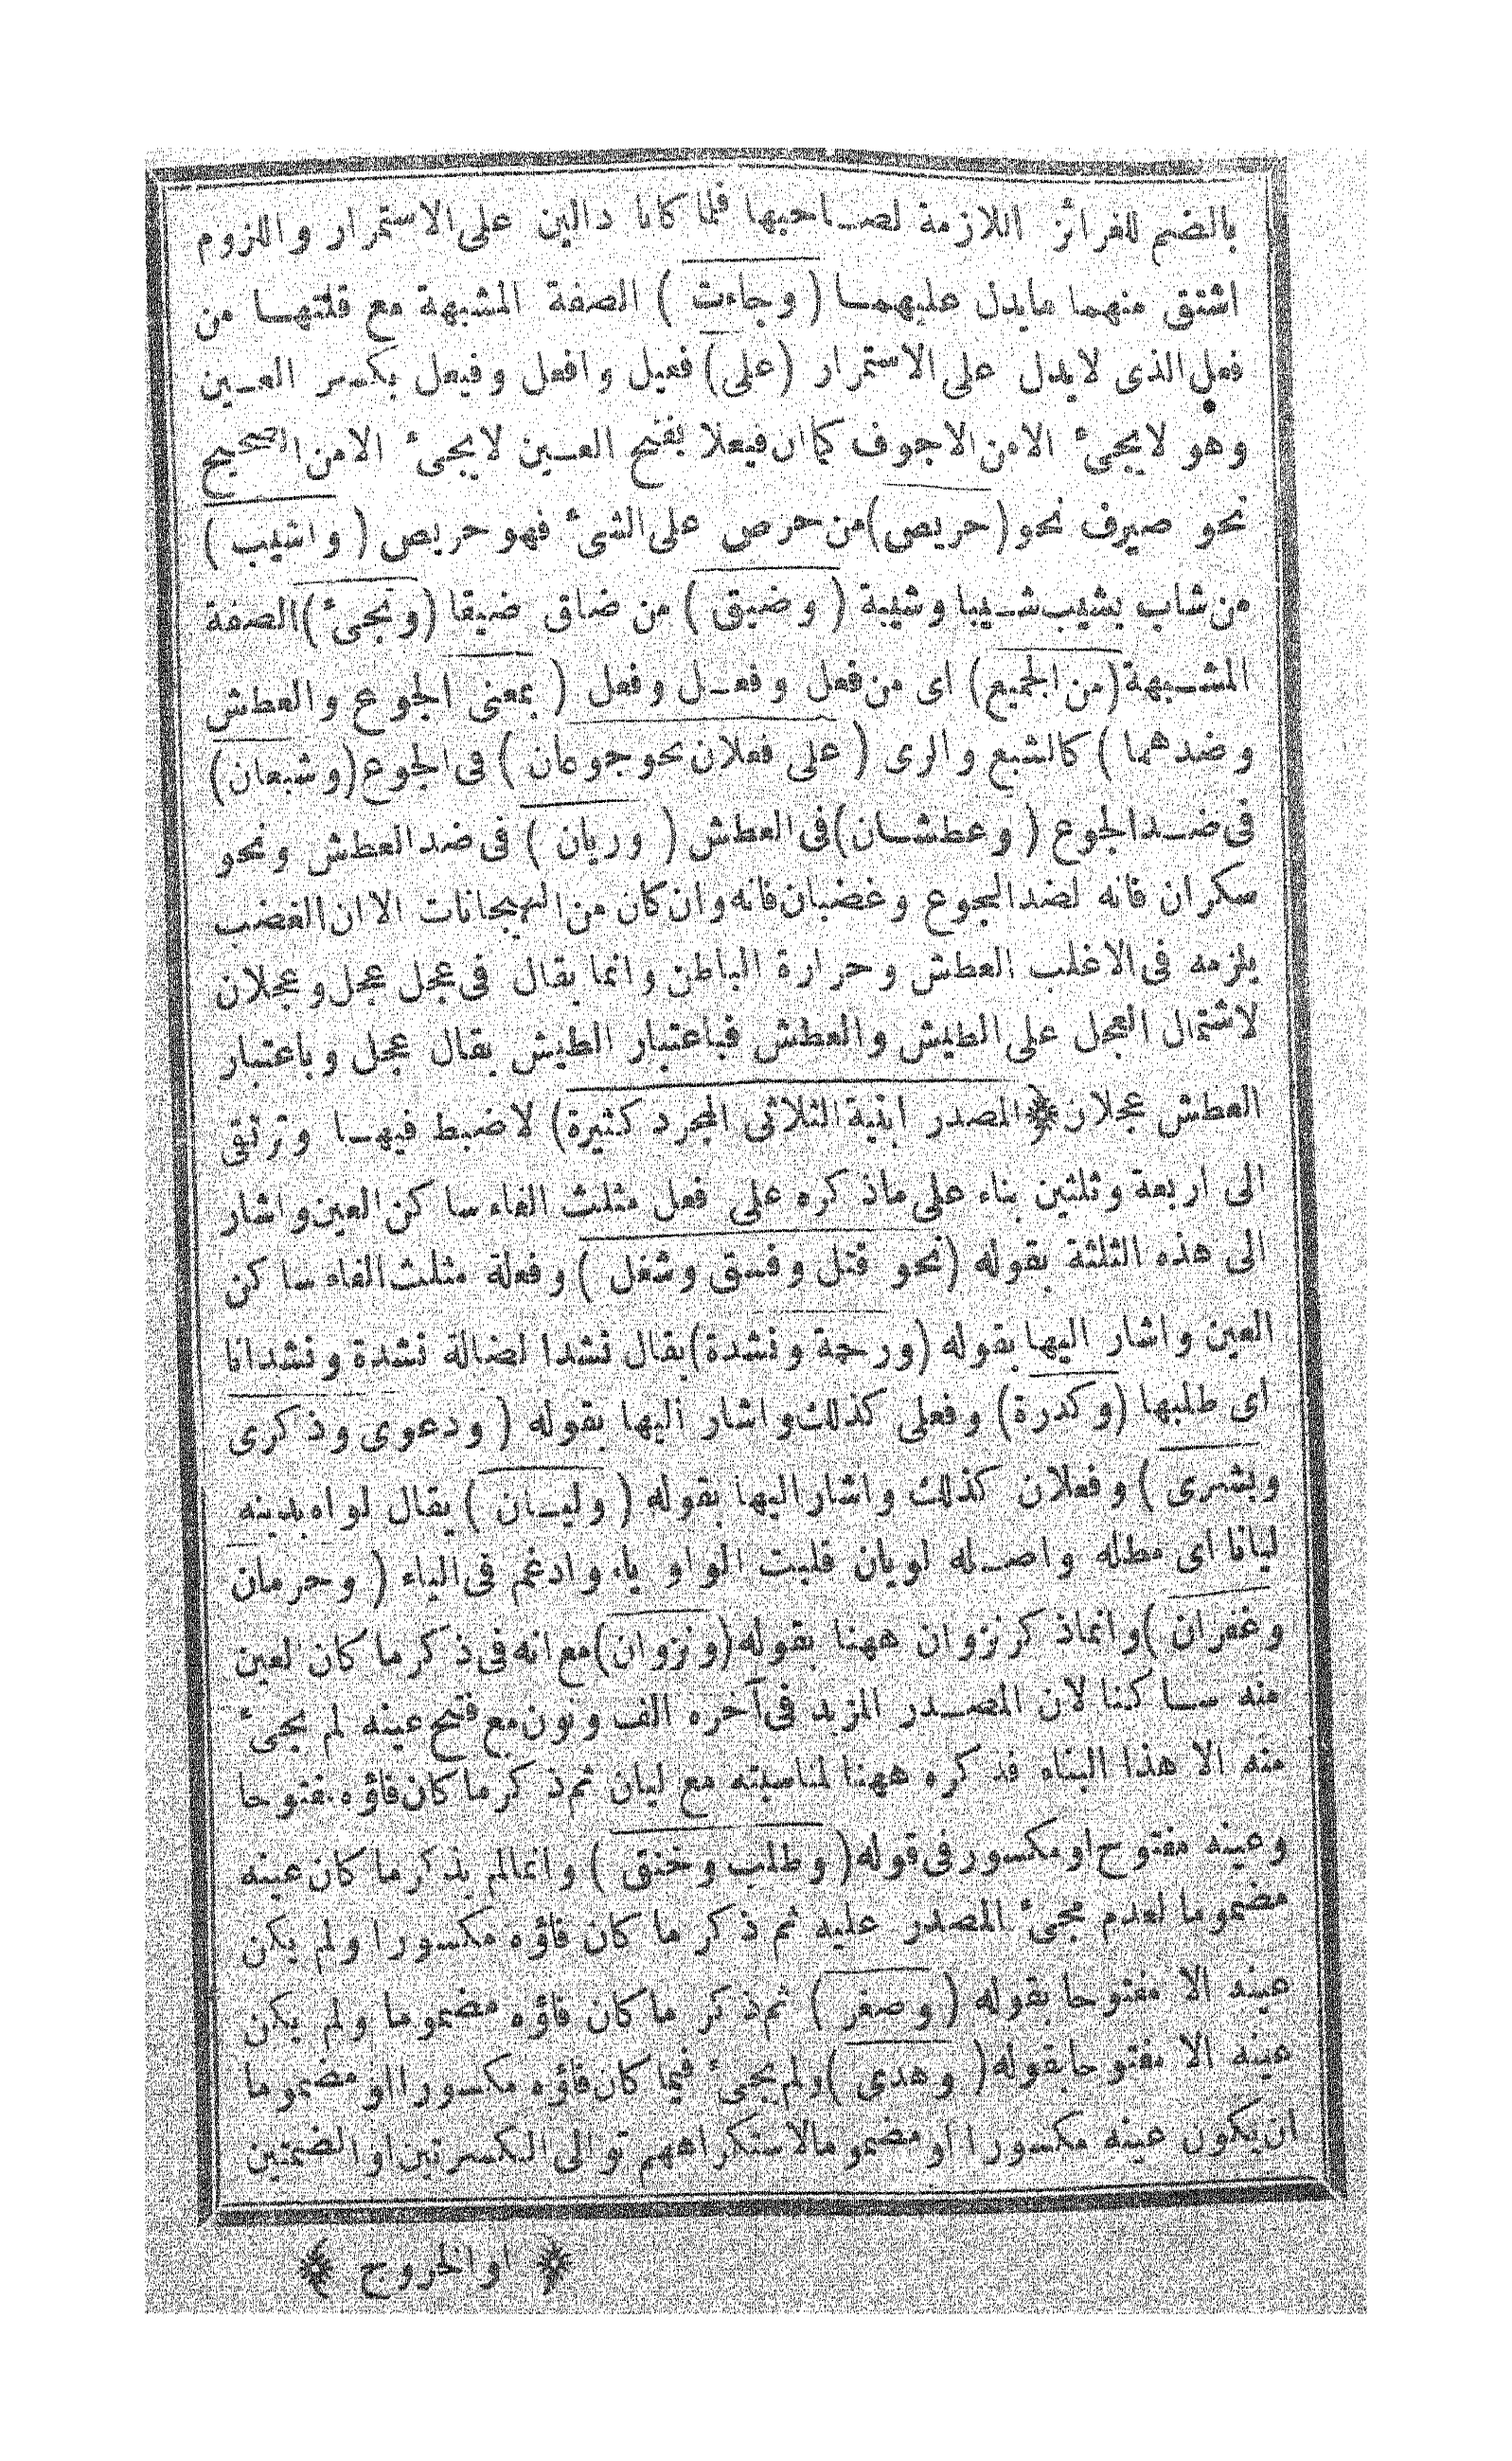 بالضم للغرائز اللازمة لصاحبها فلما كانا دالين على الاستمرار واللزوم
اشتق منهما مايدل عليهما ( وجاءت ) الصفة المشبهة مع قلتها من
فعل الذى لايدل على الاستمرار (على) فعيل وافعل وفيعل بكسر العين
وهو لايجئ الامن الاجوف كماان فيعلا بفتح العين لايجئ الامن الصحيح
نحو صيرف نحو (حريص) من حرص على الشئ فهو حريص ( واشيب )
من شاب يشيب شيبا وشيبة ( وضيق ) من ضاق ضيقا (ونجئ) الصفة
المشبهة (من الجميع) اى من فعل وفعل وفعل ( بمعنى الجوع والعطش
وضدهما ) كالشبع والرى ( على فعلان نحو جوعان ) فى الجوع (وشبعان)
فى ضد الجوع ( وعطشان) فى العطش ( وريان ) فى ضد العطش ونحو
سكران فانه لضد الجوع وغضبان فانه وان كان من الهيجانات الاان الغضب
يلزمه فى الاغلب العطش وحرارة الباطن وانما يقال فى عجل عجل وعجلان
لاشتمال العجل على الطيش والعطش فباعتبار الطيش يقال عجل وباعتبار
العطش عجلان ﴿ المصدر ابنية الثلاثى المجرد كثيرة) لاضبط فيها وترتقى
الى اربعة وثلثين بناء على ماذكره على فعل مثلث الفاء ساكن العين واشار
الى هذه الثلثة بقوله (نحو قتل وفسق وشغل ) وفعلة مثلث الفاء ساكن
العين واشار اليها بقوله (ورحمة ونشدة) يقال نشدا لضالة نشدة ونشدانا
اى طلبها (وكدرة) وفعلى كذلك واشار اليها بقوله ( ودعوى وذكرى
وبشرى ) وفعلان كذلك واشار اليها بقوله ( وليان ) يقال لواه بدينه
ليانا اى مطله واصله لويان قلبت الواو ياء وادغم فى الياء ( وحرمان
وغفران ) وانماذكر نزوان ههنا بقوله (ونزوان) مع انه فى ذكر ما كان العين
منه ساكنا لان المصدر المزيد فى آخره الف ونون مع فتح عينه لم يجئ
منه الا هذا البناء فذكره ههنا لمناسبته مع ليان ثم ذكر ما كان فاؤه مفتوحا
وعينه مفتوح او مكسور فى قوله ( وطلب وخنق ) وانمالم يذكر ما كان عينه
مضموما لعدم مجئ المصدر عليه ثم ذكر ما كان فاؤه مكسورا ولم يكن
عينه الا مفتوحا بقوله ( وصغر ) ثم ذكر ما كان فاؤه مضموما ولم يكن
عينه الا مفتوحا بقوله ( وهدى ) ولم يجئ فيما كان فاؤه مكسورا او مضموما
ان يكون عينه مكسورا او مضموما لاستكراههم توالى الكسرتين او الضمتين
﴿ اوالخروج ﴾